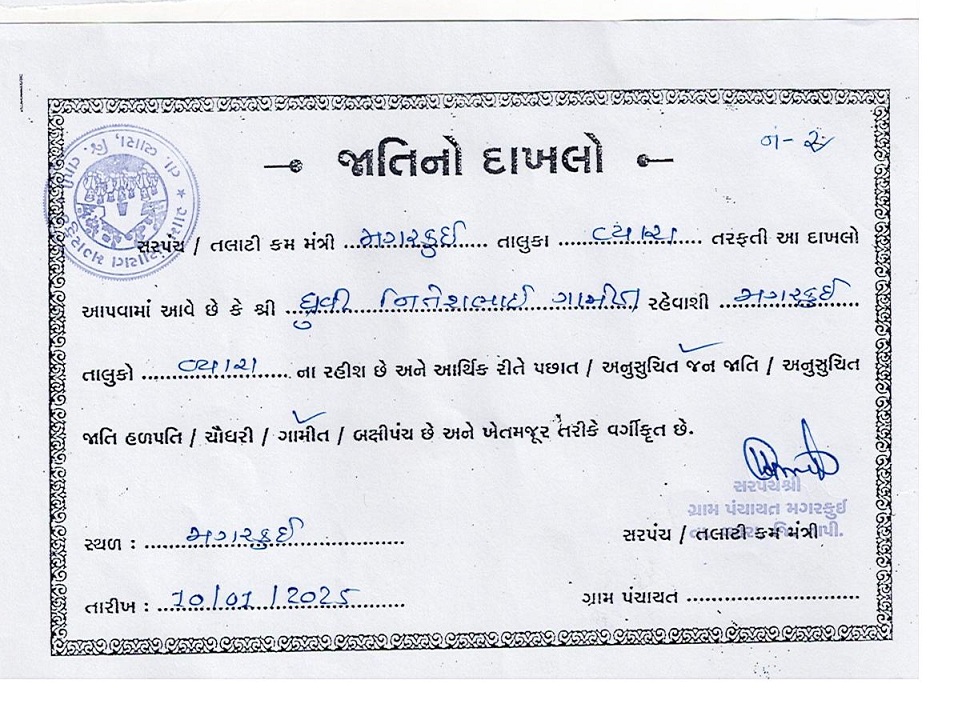 નં- ૨
જાતિનો દાખલો
સરપંચ / તલાટી કમ મંત્રી મગરકુઈ તાલુકા વ્યારા તરફતી આ દાખલો
આપવામાં આવે છે કે શ્રી ધ્રુવી નિતેશભાઈ ગામીત રહેવાશી મગરકુઈ
તાલુકો વ્યારા ના રહીશ છે અને આર્થિક રીતે પછાત / અનુસુચિત જન જાતિ / અનુસુચિત
જાતિ હળપતિ / ચૌધરી / ગામીત / બક્ષીપંચ છે અને ખેતમજૂર તરીકે વર્ગીકૃત છે.
સરપંચશ્રી
ગ્રામ પંચાયત મગરકુઈ
સ્થળ : મગરકુઈ
સરપંચ / તલાટી કમ મંત્રી
તારીખ : 10/01/2025
ગ્રામ પંચાયત